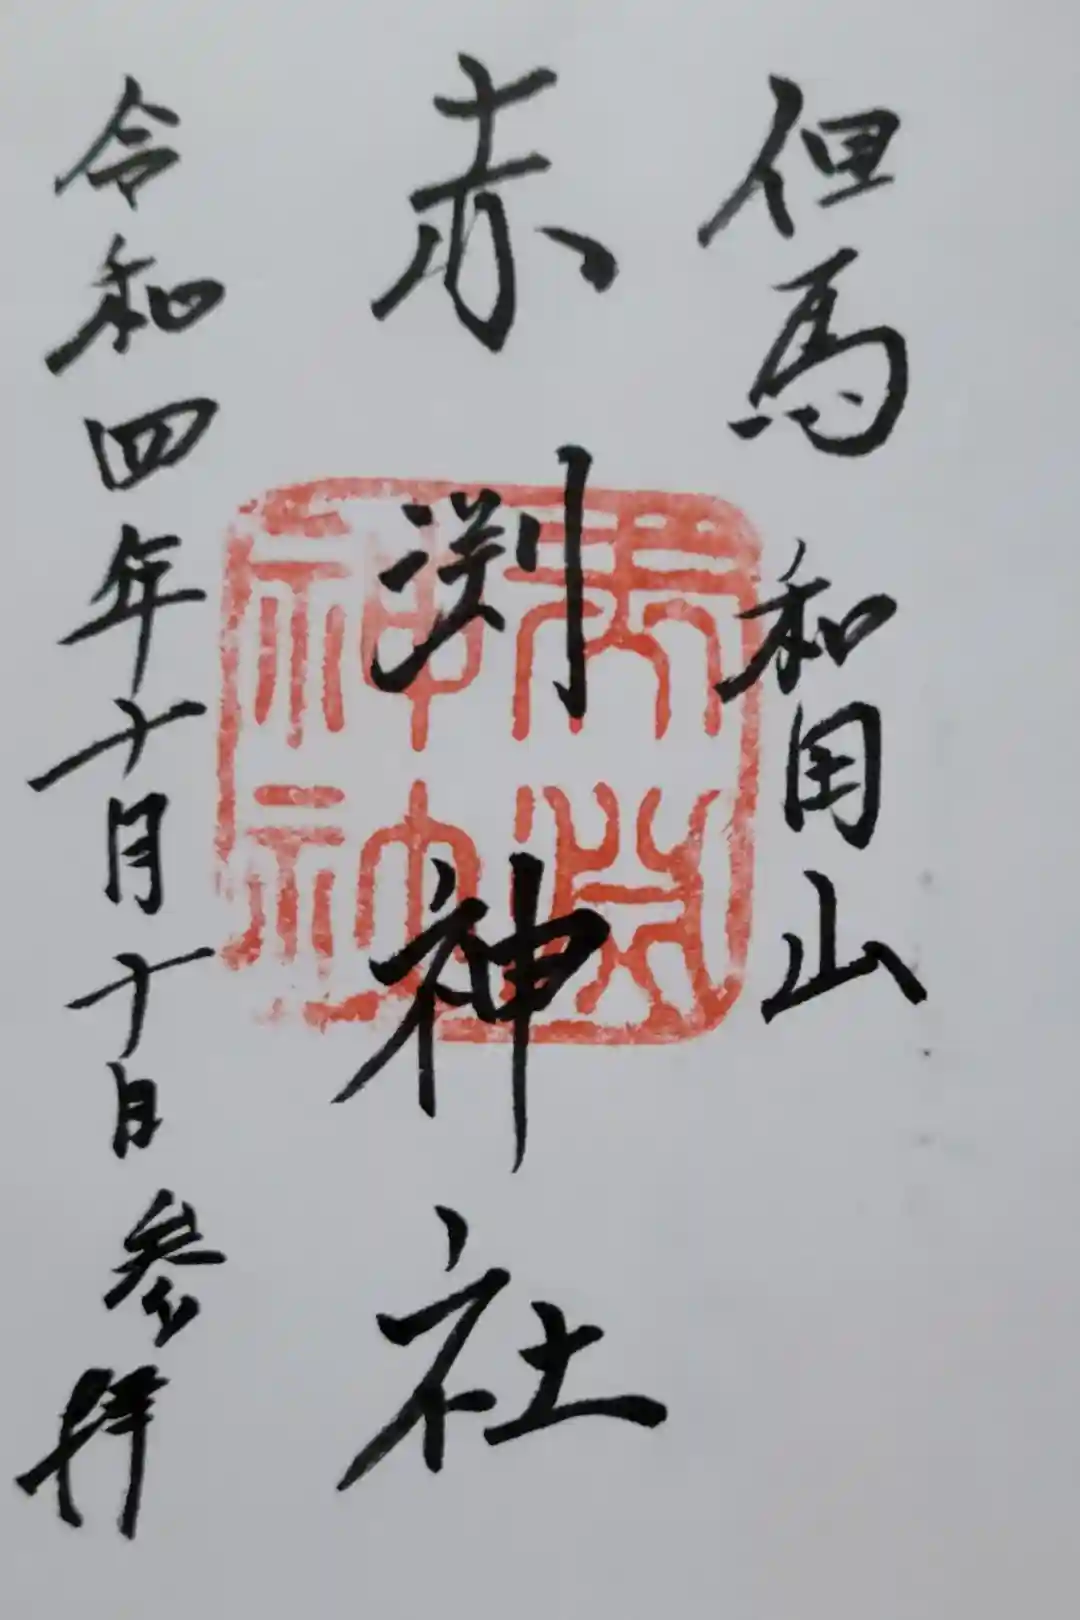 但馬 和田山
赤渕神社
令和四年十月十日参拝